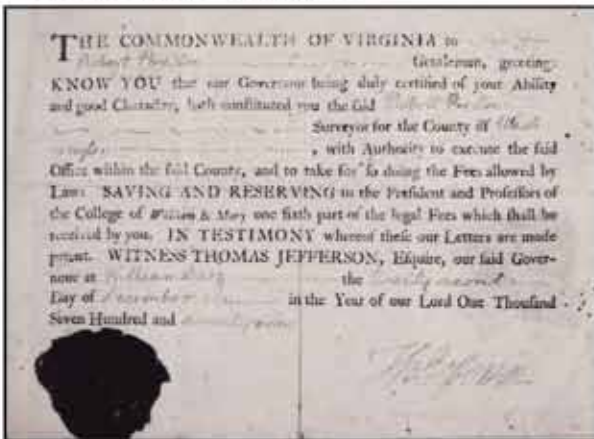 THE COMMONWEALTH OF VIRGINIA to
Robert Gentleman, greeting:
KNOW YOU that our Governour being duly certified of your Ability
and good Character, hath constituted you the said Robert
Surveyor for the County of
, with Authority to execute the said
Office within the said County, and to take for so doing the Fees allowed by
Law: SAVING AND RESERVING to the President and Professors of
the College of William & Mary one sixth part of the legal Fees which shall be
received by you. IN TESTIMONY whereof these our Letters are made
patent. WITNESS THOMAS JEFFERSON, Esquire, our said Gover-
nour at Williamsburg the
Day of december in the Year of our Lord One Thousand
Seven Hundred and